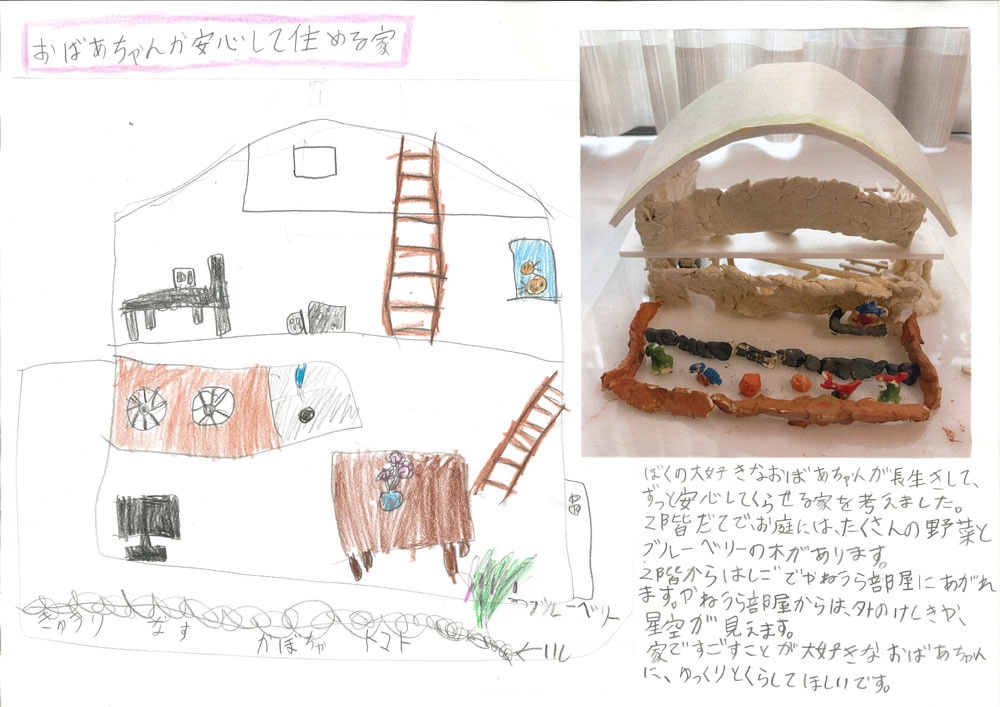 おばあちゃんが安心して住める家
ぼくの大好きなおばあちゃんが長生きして、
ずっと安心してくらせる家を考えました。
2階だてで、お庭には、たくさんの野菜と
ブルーベリーの木があります。
2階からはしごでやねうら部屋にあがれ
ます。やねうら部屋からは、外のけしきや、
星空が見えます。
家ですごすことが大好きなおばあちゃん
に、ゆっくりとくらしてほしいです。
ブルーベリー
きゅうり なす かぼちゃ トマト